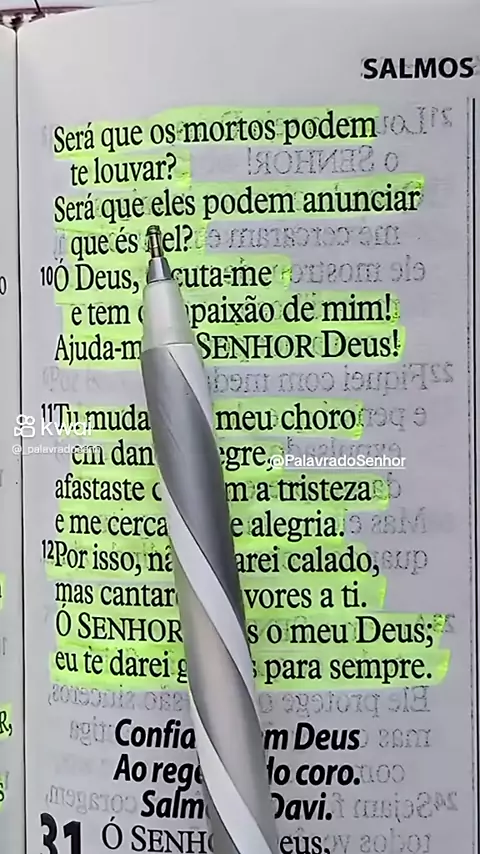 SALMOS
Será que os mortos podem
te louvar?
Será que eles podem anunciar
que és el?
10Ó Deus, cuta-me
e tem paixão de mim!
Ajuda-m SENHOR Deus!
11Tu muda meu choro
em dan egre,
@PalavradoSenhor
kwai
afastaste c m a tristeza
e me cerca e alegria.
12Por isso, nã arei calado,
mas cantar vores a ti.
Ó SENHOR s o meu Deus;
eu te darei g s para sempre.
Confia m Deus
Ao rege do coro.
Salm Davi.
31 Ó SENH eus,